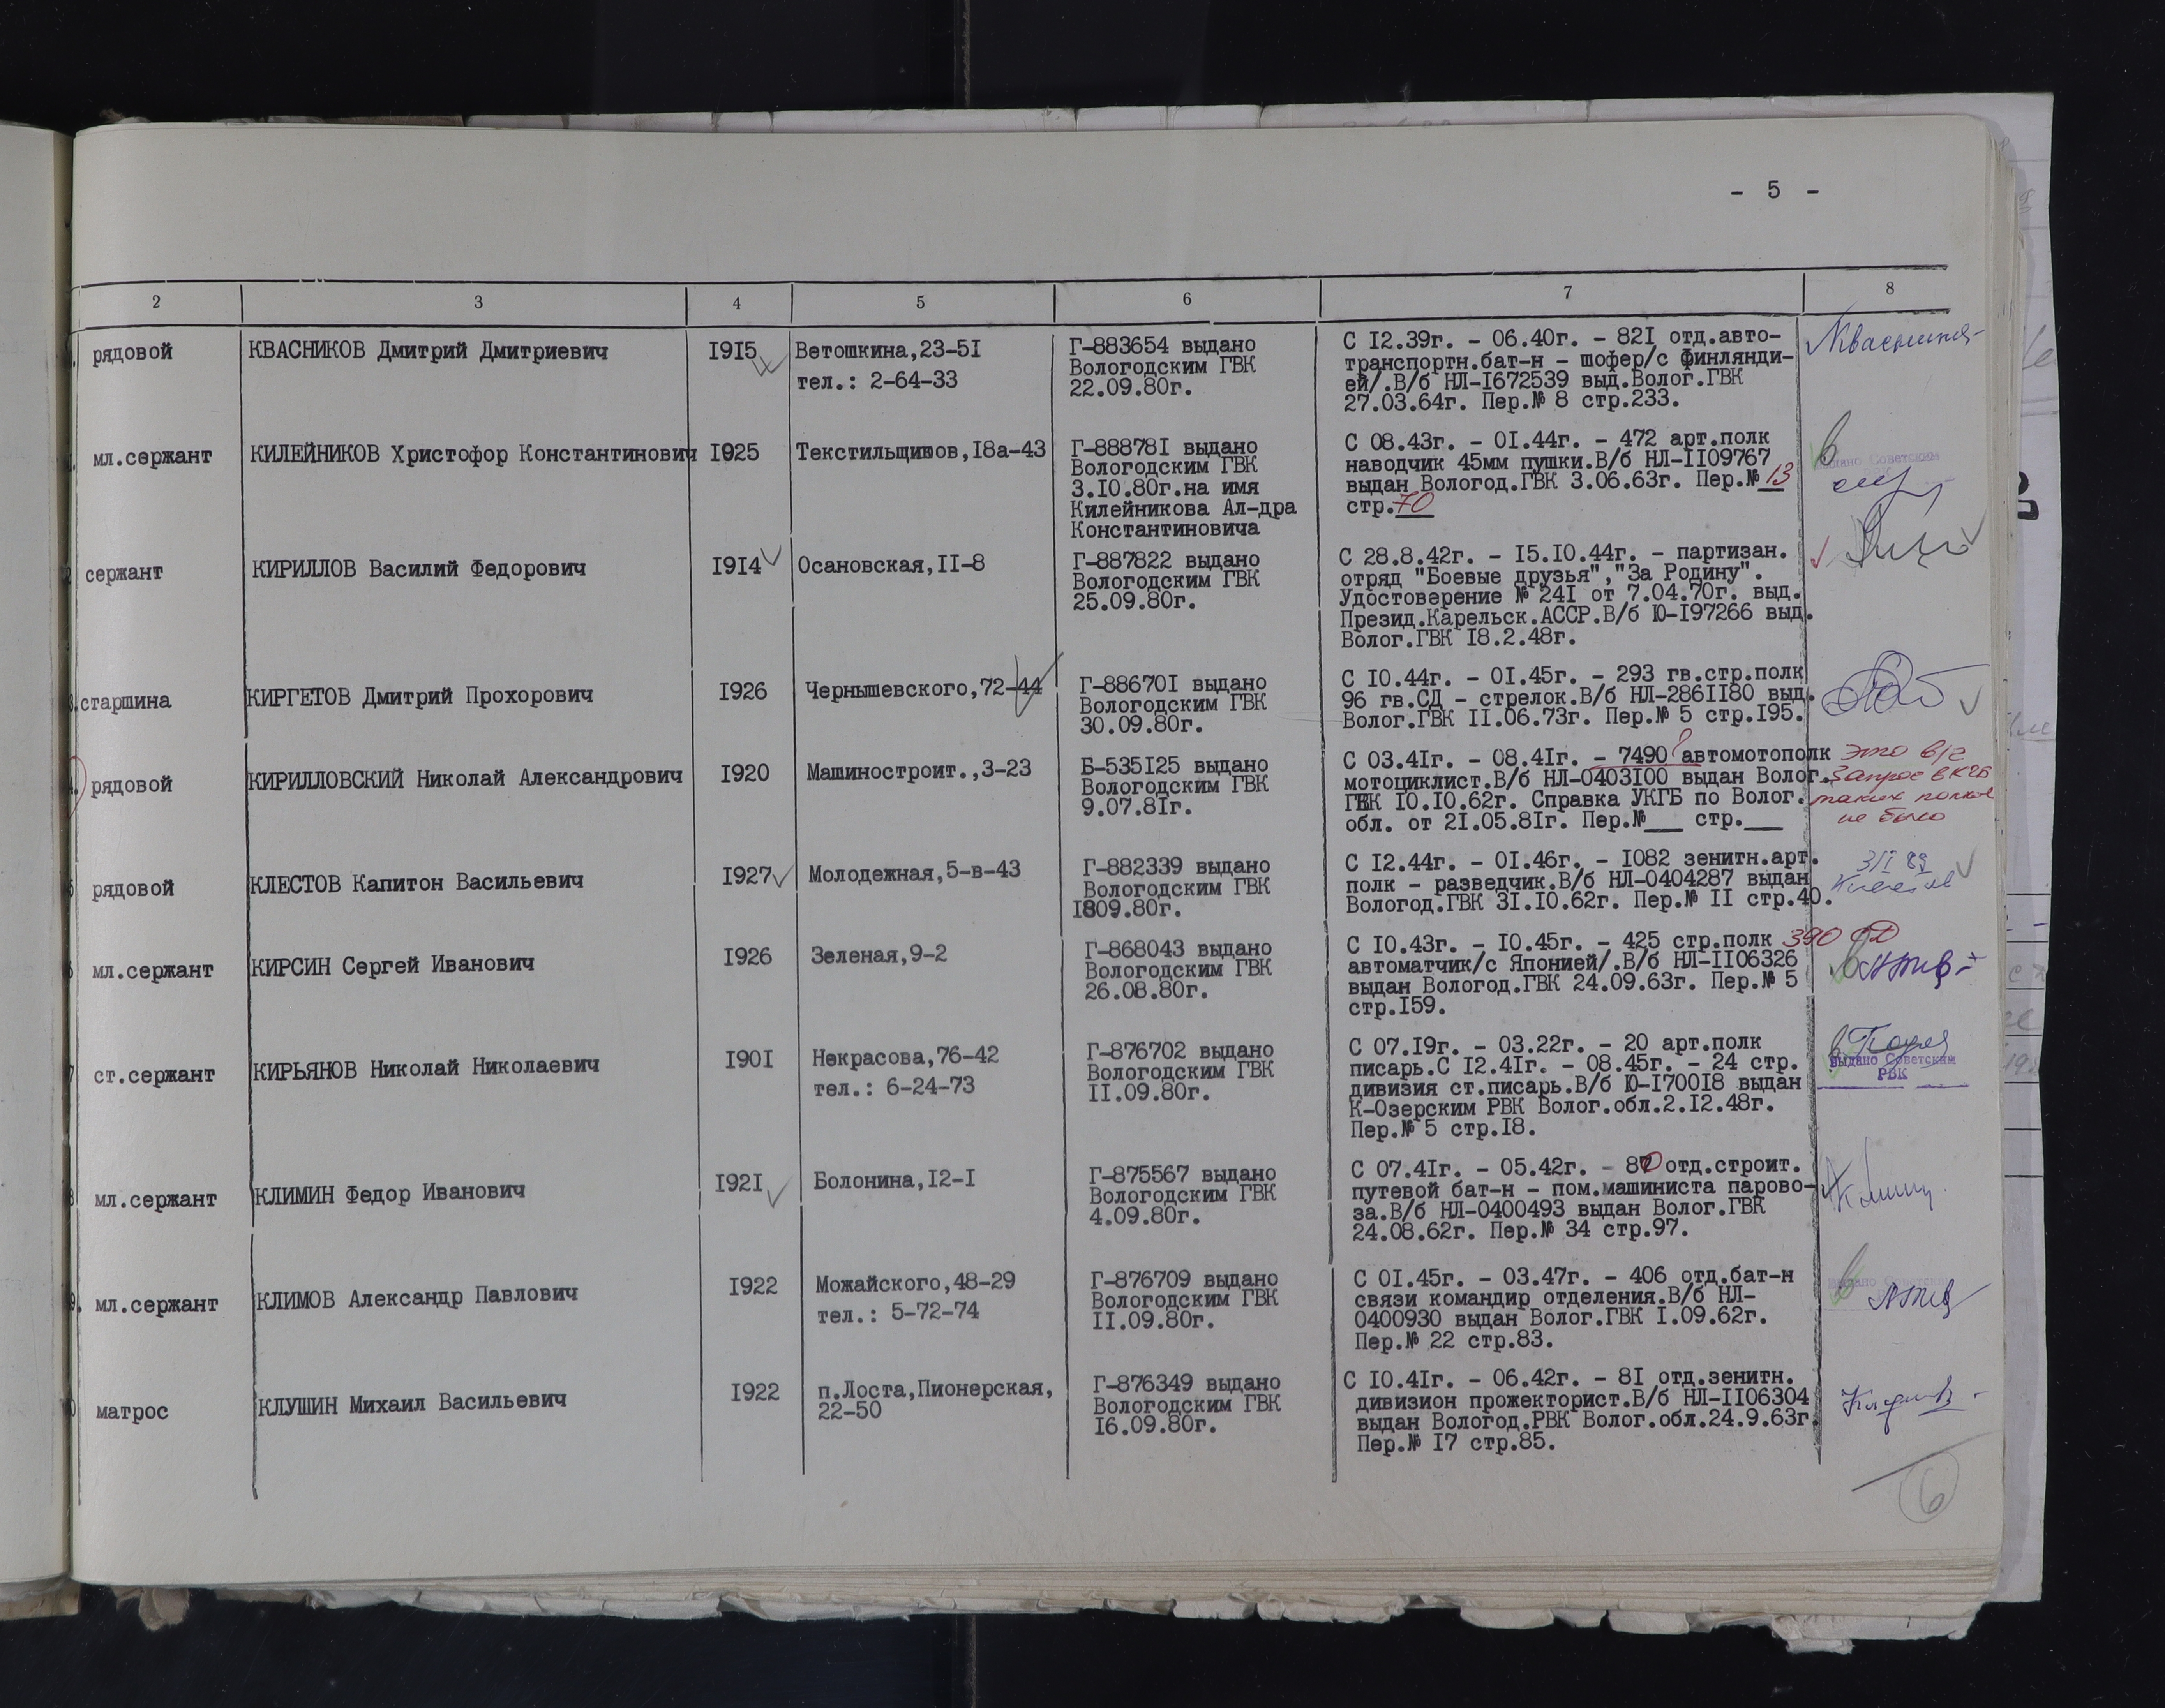 - 5 -
2 3 4 5 6 7 8
рядовой КВАСНИКОВ Дмитрий Дмитриевич 1915 Ветошкина,23-51
тел.: 2-64-33
Г-883654 выдано
Вологодским ГВК
22.09.80г.
С 12.39г. - 06.40г. - 821 отд.авто-
транспортн.бат-н - шофер/с Финлянди-
ей/.В/б НЛ-1672539 выд.Волог.ГВК
27.03.64г. Пер.№ 8 стр.233.
мл.сержант КИЛЕЙНИКОВ Христофор Константинович 1925 Текстильщиков,18а-43
Г-888781 выдано
Вологодским ГВК
3.10.80г.на имя
Килейникова Ал-дра
Константиновича
С 08.43г. - 01.44г. - 472 арт.полк
наводчик 45мм пушки.В/б НЛ-1109767
выдан Вологод.ГВК 3.06.63г. Пер.№ 13
стр.70
выдано Советским
сержант КИРИЛЛОВ Василий Федорович 1914 Осановская,11-8
Г-887822 выдано
Вологодским ГВК
25.09.80г.
С 28.8.42г. - 15.10.44г. - партизан.
отряд "Боевые друзья","За Родину".
Удостоверение № 241 от 7.04.70г. выд.
Презид.Карельск.АССР.В/б Ю-197266 выд.
Волог.ГВК 18.2.48г.
старшина КИРГЕТОВ Дмитрий Прохорович 1926 Чернышевского,72-44
Г-886701 выдано
Вологодским ГВК
30.09.80г.
С 10.44г. - 01.45г. - 293 гв.стр.полк
96 гв.СД - стрелок.В/б НЛ-2861180 выд.
Волог.ГВК 11.06.73г. Пер.№ 5 стр.195.
рядовой КИРИЛЛОВСКИЙ Николай Александрович 1920 Машиностроит.,3-23
Б-535125 выдано
Вологодским ГВК
9.07.81г.
С 03.41г. - 08.41г. - 7490 ? автомотополк
мотоциклист.В/б НЛ-0403100 выдан Волог.
ГВК 10.10.62г. Справка УКГБ по Волог.
обл. от 21.05.81г. Пер.№___ стр.___
это
Запрос в КГБ
таких полков
не было
рядовой КЛЕСТОВ Капитон Васильевич 1927 Молодежная,5-в-43
Г-882339 выдано
Вологодским ГВК
1809.80г.
С 12.44г. - 01.46г. - 1082 зенитн.арт.
полк - разведчик.В/б НЛ-0404287 выдан
Вологод.ГВК 31.10.62г. Пер.№ 11 стр.40.
мл.сержант КИРСИН Сергей Иванович 1926 Зеленая,9-2
Г-868043 выдано
Вологодским ГВК
26.08.80г.
С 10.43г. - 10.45г. - 425 стр.полк 390 СД
автоматчик/с Японией/.В/б НЛ-1106326
выдан Вологод.ГВК 24.09.63г. Пер.№ 5
стр.159.
ст.сержант КИРЬЯНОВ Николай Николаевич 1901 Некрасова,76-42
тел.: 6-24-73
Г-876702 выдано
Вологодским ГВК
11.09.80г.
С 07.19г. - 03.22г. - 20 арт.полк
писарь.С 12.41г. - 08.45г. - 24 стр.
дивизия ст.писарь.В/б Ю-170018 выдан
К-Озерским РВК Волог.обл.2.12.48г.
Пер.№ 5 стр.18.
выдано Советским
РВК
мл.сержант КЛИМИН Федор Иванович 1921 Болонина,12-1
Г-875567 выдано
Вологодским ГВК
4.09.80г.
С 07.41г. - 05.42г. - 870 отд.строит.
путевой бат-н - пом.машиниста парово-
за.В/б НЛ-0400493 выдан Волог.ГВК
24.08.62г. Пер.№ 34 стр.97.
мл.сержант КЛИМОВ Александр Павлович 1922 Можайского,48-29
тел.: 5-72-74
Г-876709 выдано
Вологодским ГВК
11.09.80г.
С 01.45г. - 03.47г. - 406 отд.бат-н
связи командир отделения.В/б НЛ-
0400930 выдан Волог.ГВК 1.09.62г.
Пер.№ 22 стр.83.
выдано Советским
матрос КЛУШИН Михаил Васильевич 1922 п.Лоста,Пионерская,
22-50
Г-876349 выдано
Вологодским ГВК
16.09.80г.
С 10.41г. - 06.42г. - 81 отд.зенитн.
дивизион прожекторист.В/б НЛ-1106304
выдан Вологод.РВК Волог.обл.24.9.63г.
Пер.№ 17 стр.85.
6